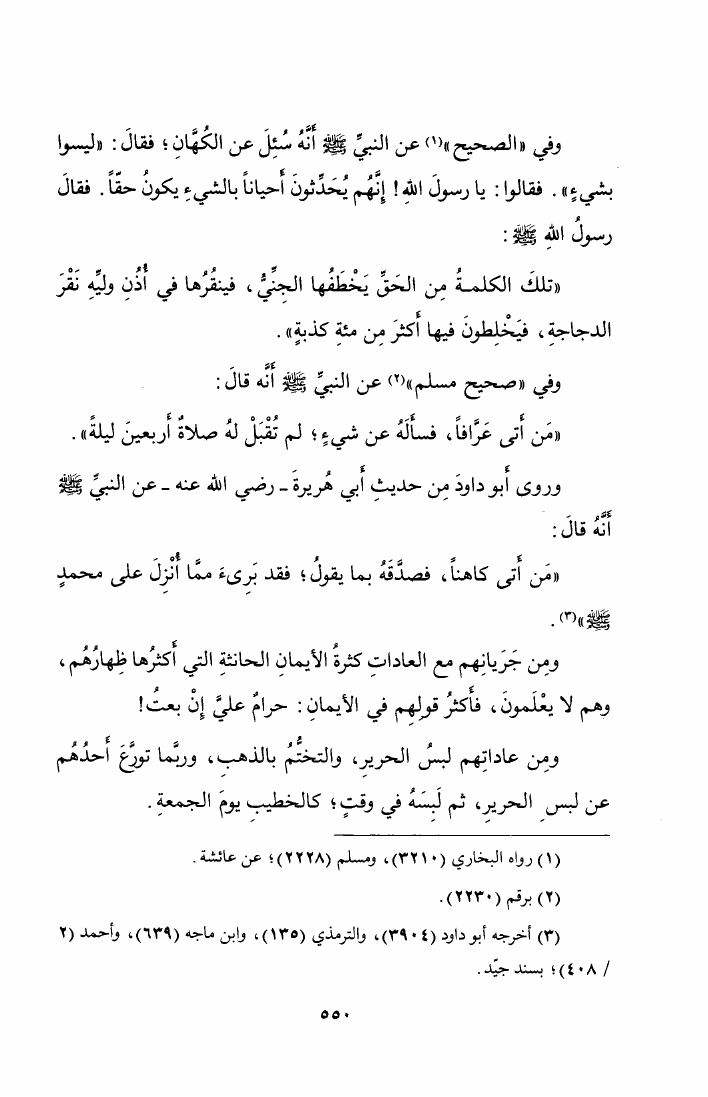 وفي «الصحيح»(١) عن النبيِّ ﷺ أَنَّهُ سُئِلَ عن الكُهَّانِ؛ فقالَ: «ليسوا
بشيءٍ». فقالوا: يا رسولَ اللهِ! إِنَّهُم يُحَدِّثونَ أَحياناً بالشيءِ يكونُ حقّاً. فقالَ
رسولُ اللهِ ﷺ:
«تلكَ الكلمـةُ مِن الحَقِّ يَخْطَفُها الجِنِّيُّ، فينقُرُها في أُذُنِ وليِّهِ نَقْرَ
الدجاجةِ، فيَخْلِطونَ فيها أَكثرَ مِن مئةِ كذبةٍ».
وفي «صحيح مسلم»(٢) عن النبيِّ ﷺ أَنَّه قالَ:
«مَن أَتى عَرَّافاً، فسأَلَهُ عن شيءٍ؛ لم تُقْبَلْ لهُ صلاةٌ أَربعينَ ليلةً».
وروى أَبو داودَ مِن حديثِ أَبي هُريرةَ ـ رضي الله عنه ـ عن النبيِّ ﷺ
أَنَّهُ قالَ:
«مَن أَتى كاهناً، فصدَّقَهُ بما يقولُ؛ فقد بَرِىءَ ممَّا أُنْزِلَ على محمدٍ
ﷺ»(٣).
ومِن جَرَيانِهم مع العاداتِ كثرةُ الأيمانِ الحانثةِ التي أَكثرُها ظِهارُهُم،
وهم لا يعْلَمونَ، فأَكثرُ قولِهم في الأيمانِ: حرامٌ عليَّ إِنْ بعتُ!
ومِن عاداتِهم لبسُ الحريرِ، والتختُّمُ بالذهبِ، وربَّما تورَّعَ أَحدُهُم
عن لبسِ الحريرِ، ثم لَبِسَهُ في وقتٍ؛ كالخطيبِ يومَ الجمعةِ.
(١) رواه البخاري (٣٢١٠)، ومسلم (٢٢٢٨)؛ عن عائشة.
(٢) برقم (٢٢٣٠).
(٣) أخرجه أبو داود (٣٩٠٤)، والترمذي (١٣٥)، وابن ماجه (٦٣٩)، وأحمد (٢
/ ٤٠٨)؛ بسند جيّد.
٥٥٠